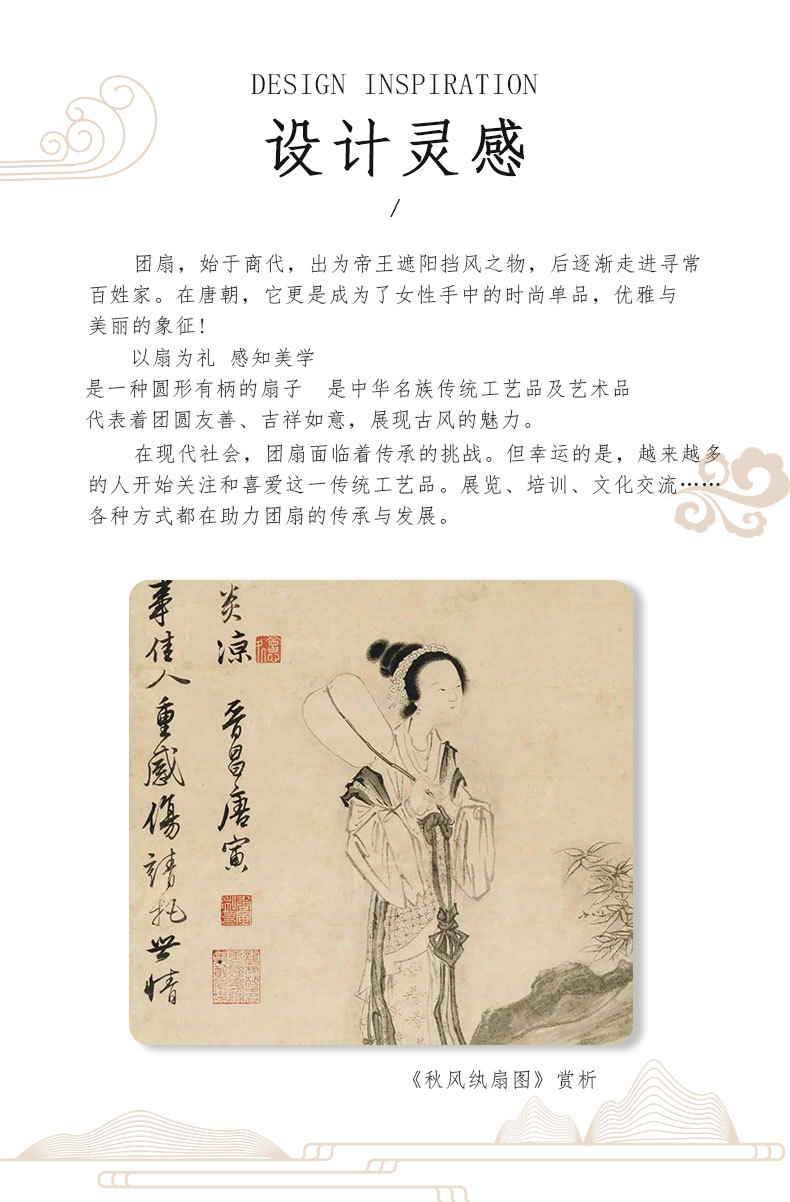 DESIGN INSPIRATION
设计灵感
/
团扇，始于商代，出为帝王遮阳挡风之物，后逐渐走进寻常
百姓家。在唐朝，它更是成为了女性手中的时尚单品，优雅与
美丽的象征！
以扇为礼 感知美学
是一种圆形有柄的扇子 是中华名族传统工艺品及艺术品
代表着团圆友善、吉祥如意，展现古风的魅力。
在现代社会，团扇面临着传承的挑战。但幸运的是，越来越多
的人开始关注和喜爱这一传统工艺品。展览、培训、文化交流……
各种方式都在助力团扇的传承与发展。
炎凉
晋昌唐寅
事佳人重感伤請托世情
《秋风纨扇图》赏析